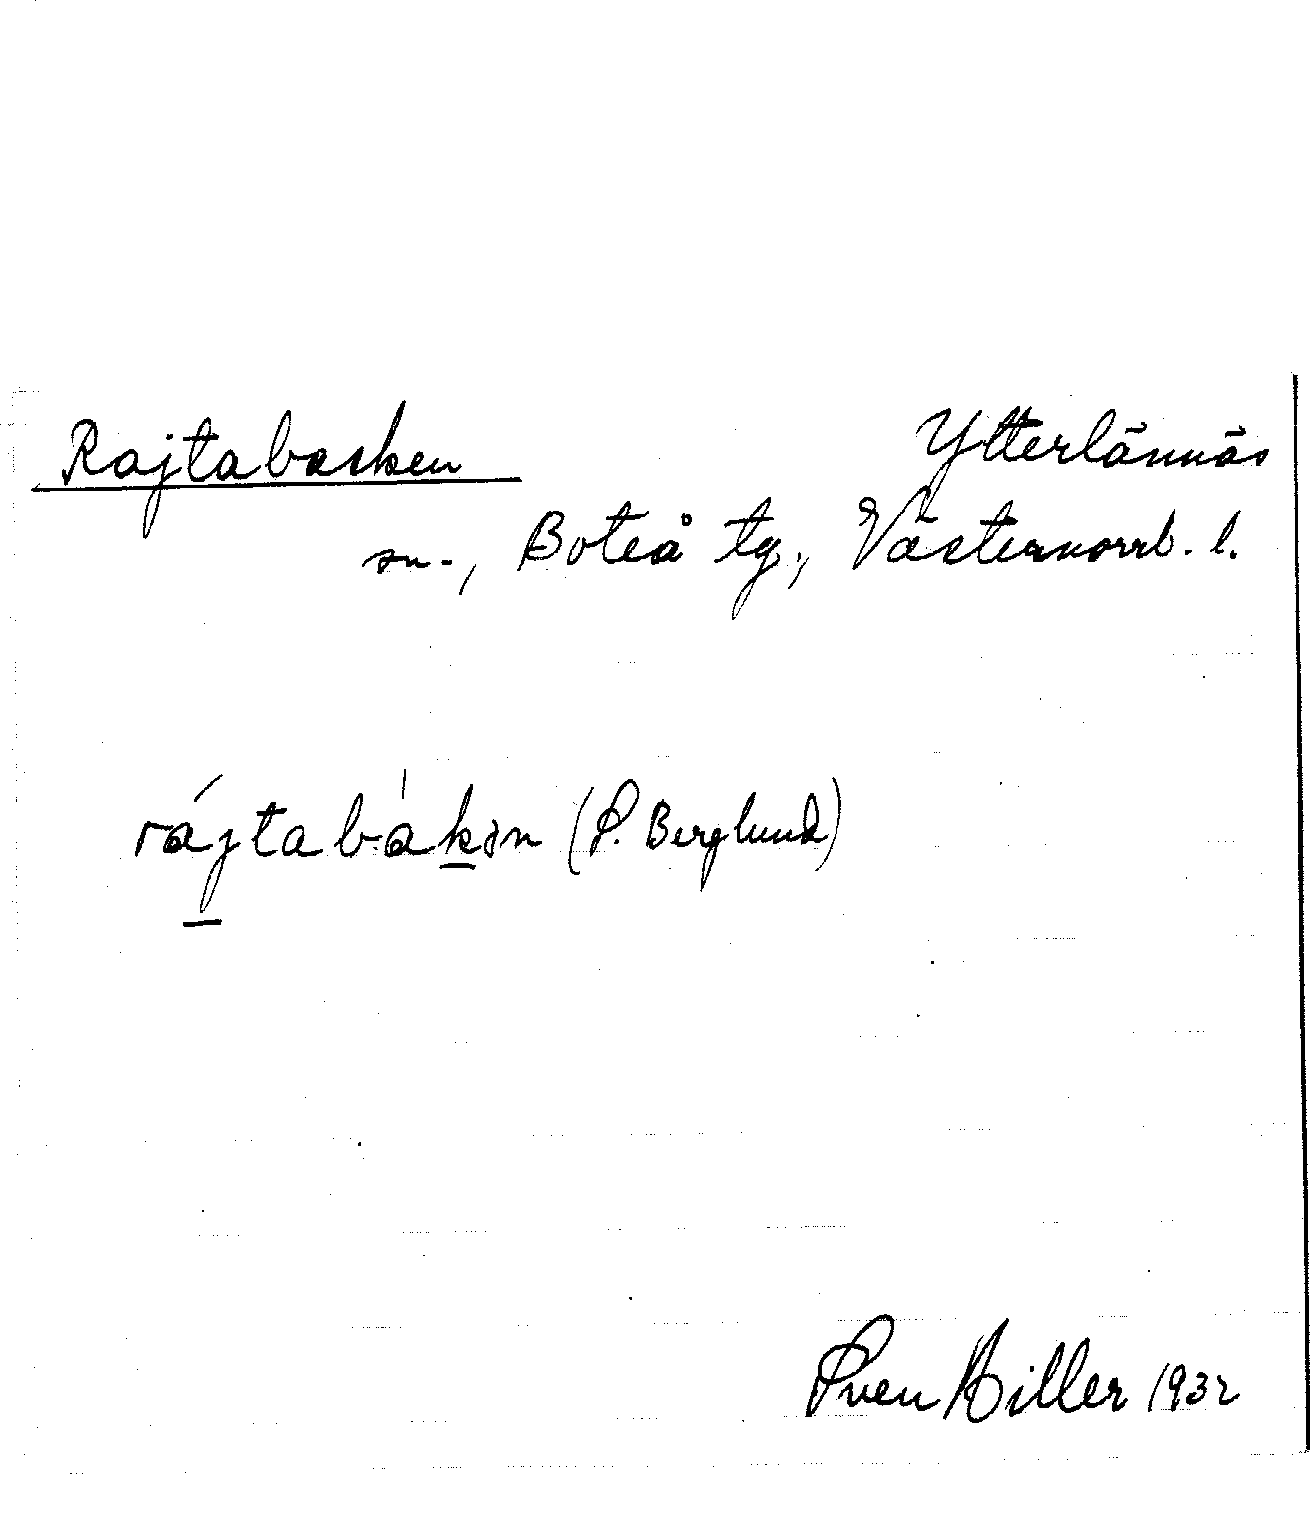 Rajtabacken Ytterlännäs
sn., Boteå tg., Västernorrl. l.
rájtabákən (P. Berglund)
Sven Hiller 1932